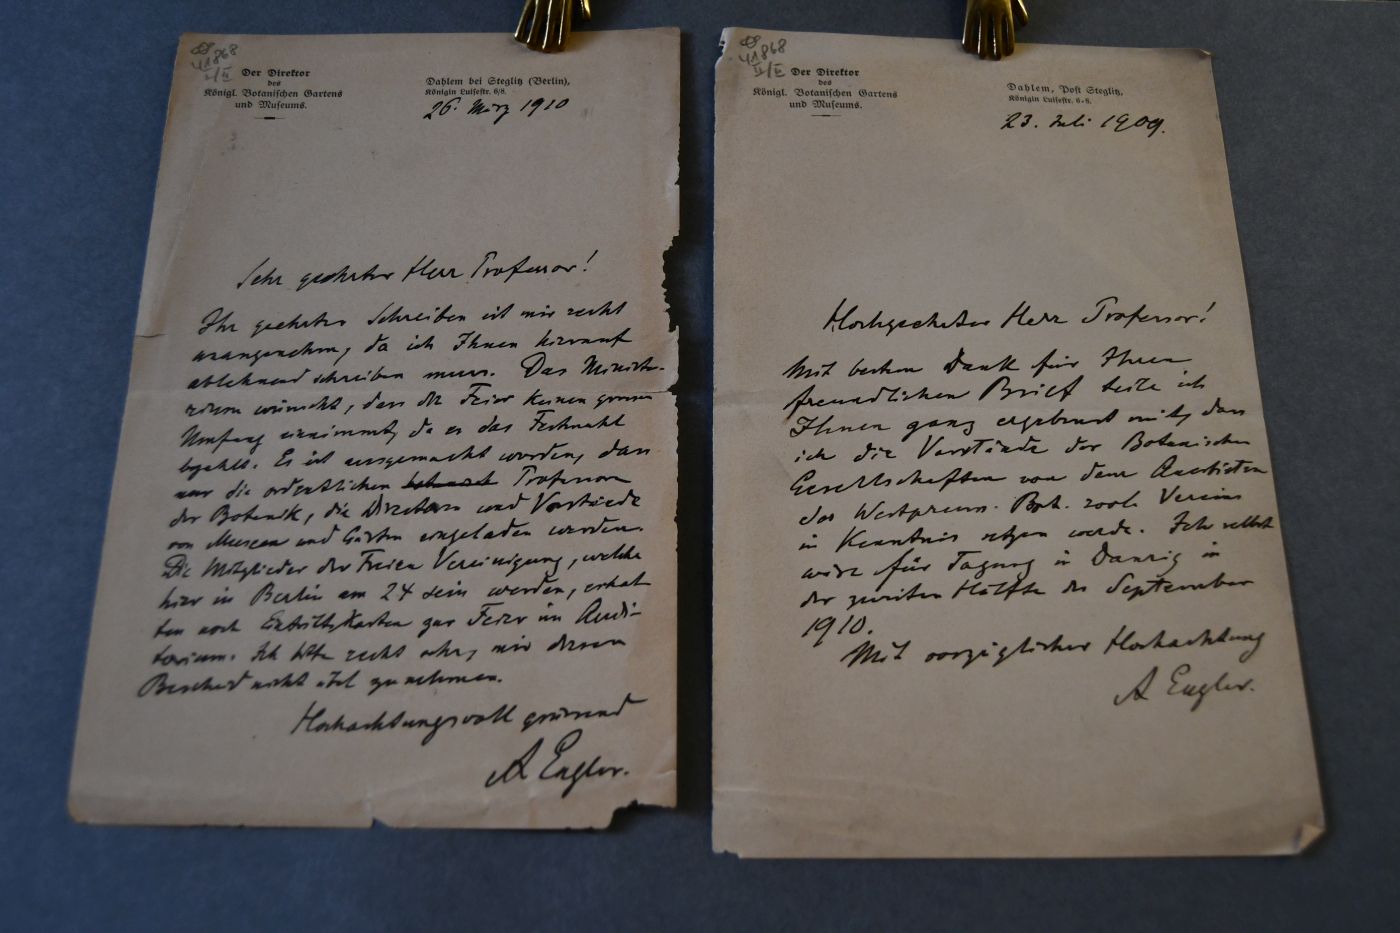 41868
II/E
Der Direktor
des
Königl. Botanischen Gartens
und Museums.
Dahlem bei Steglitz (Berlin),
Königin Luisestr. 6/8.
26. März 1910
Sehr geehrter Herr Professor!
Ihr geehrtes Schreiben ist mir recht
unangenehm, da ich Ihnen hierauf
ablehnend schreiben muss. Das Ministe-
rium wünscht, dass die Feier keinen grossen
Umfang einnimmt, da es das Festmahl
bezahlt. Es ist ausgemacht worden, dass
nur die ordentlichen Professoren
der Botanik, die Directoren und Vorstände
von Museen und Gärten eingeladen werden.
Die Mitglieder der Freien Vereinigung, welche
hier in Berlin am 24 sein werden, erhal
ten noch Eintrittskarten zur Feier im Audi-
torium. Ich bitte recht sehr, mir diesen
Bescheid nicht übel zu nehmen.
Hochachtungsvoll grüssend
A Engler.
41868
II/E
Der Direktor
des
Königl. Botanischen Gartens
und Museums.
Dahlem, Post Steglitz,
Königin Luisestr. 6-8.
23. Juli 1909.
Hochgeehrter Herr Professor!
Mit bestem Dank für Ihren
freundlichen Brief teile ich
Ihnen ganz ergebenst mit, dass
ich die Vorstände der Botanischen
Gesellschaften von dem Anerbieten
des Westpreuss. Bot. zool. Vereins
in Kenntnis setzen werde. Ich selbst
wäre für Tagung in Danzig in
der zweiten Hälfte des September
1910.
Mit vorzüglicher Hochachtung
A Engler.